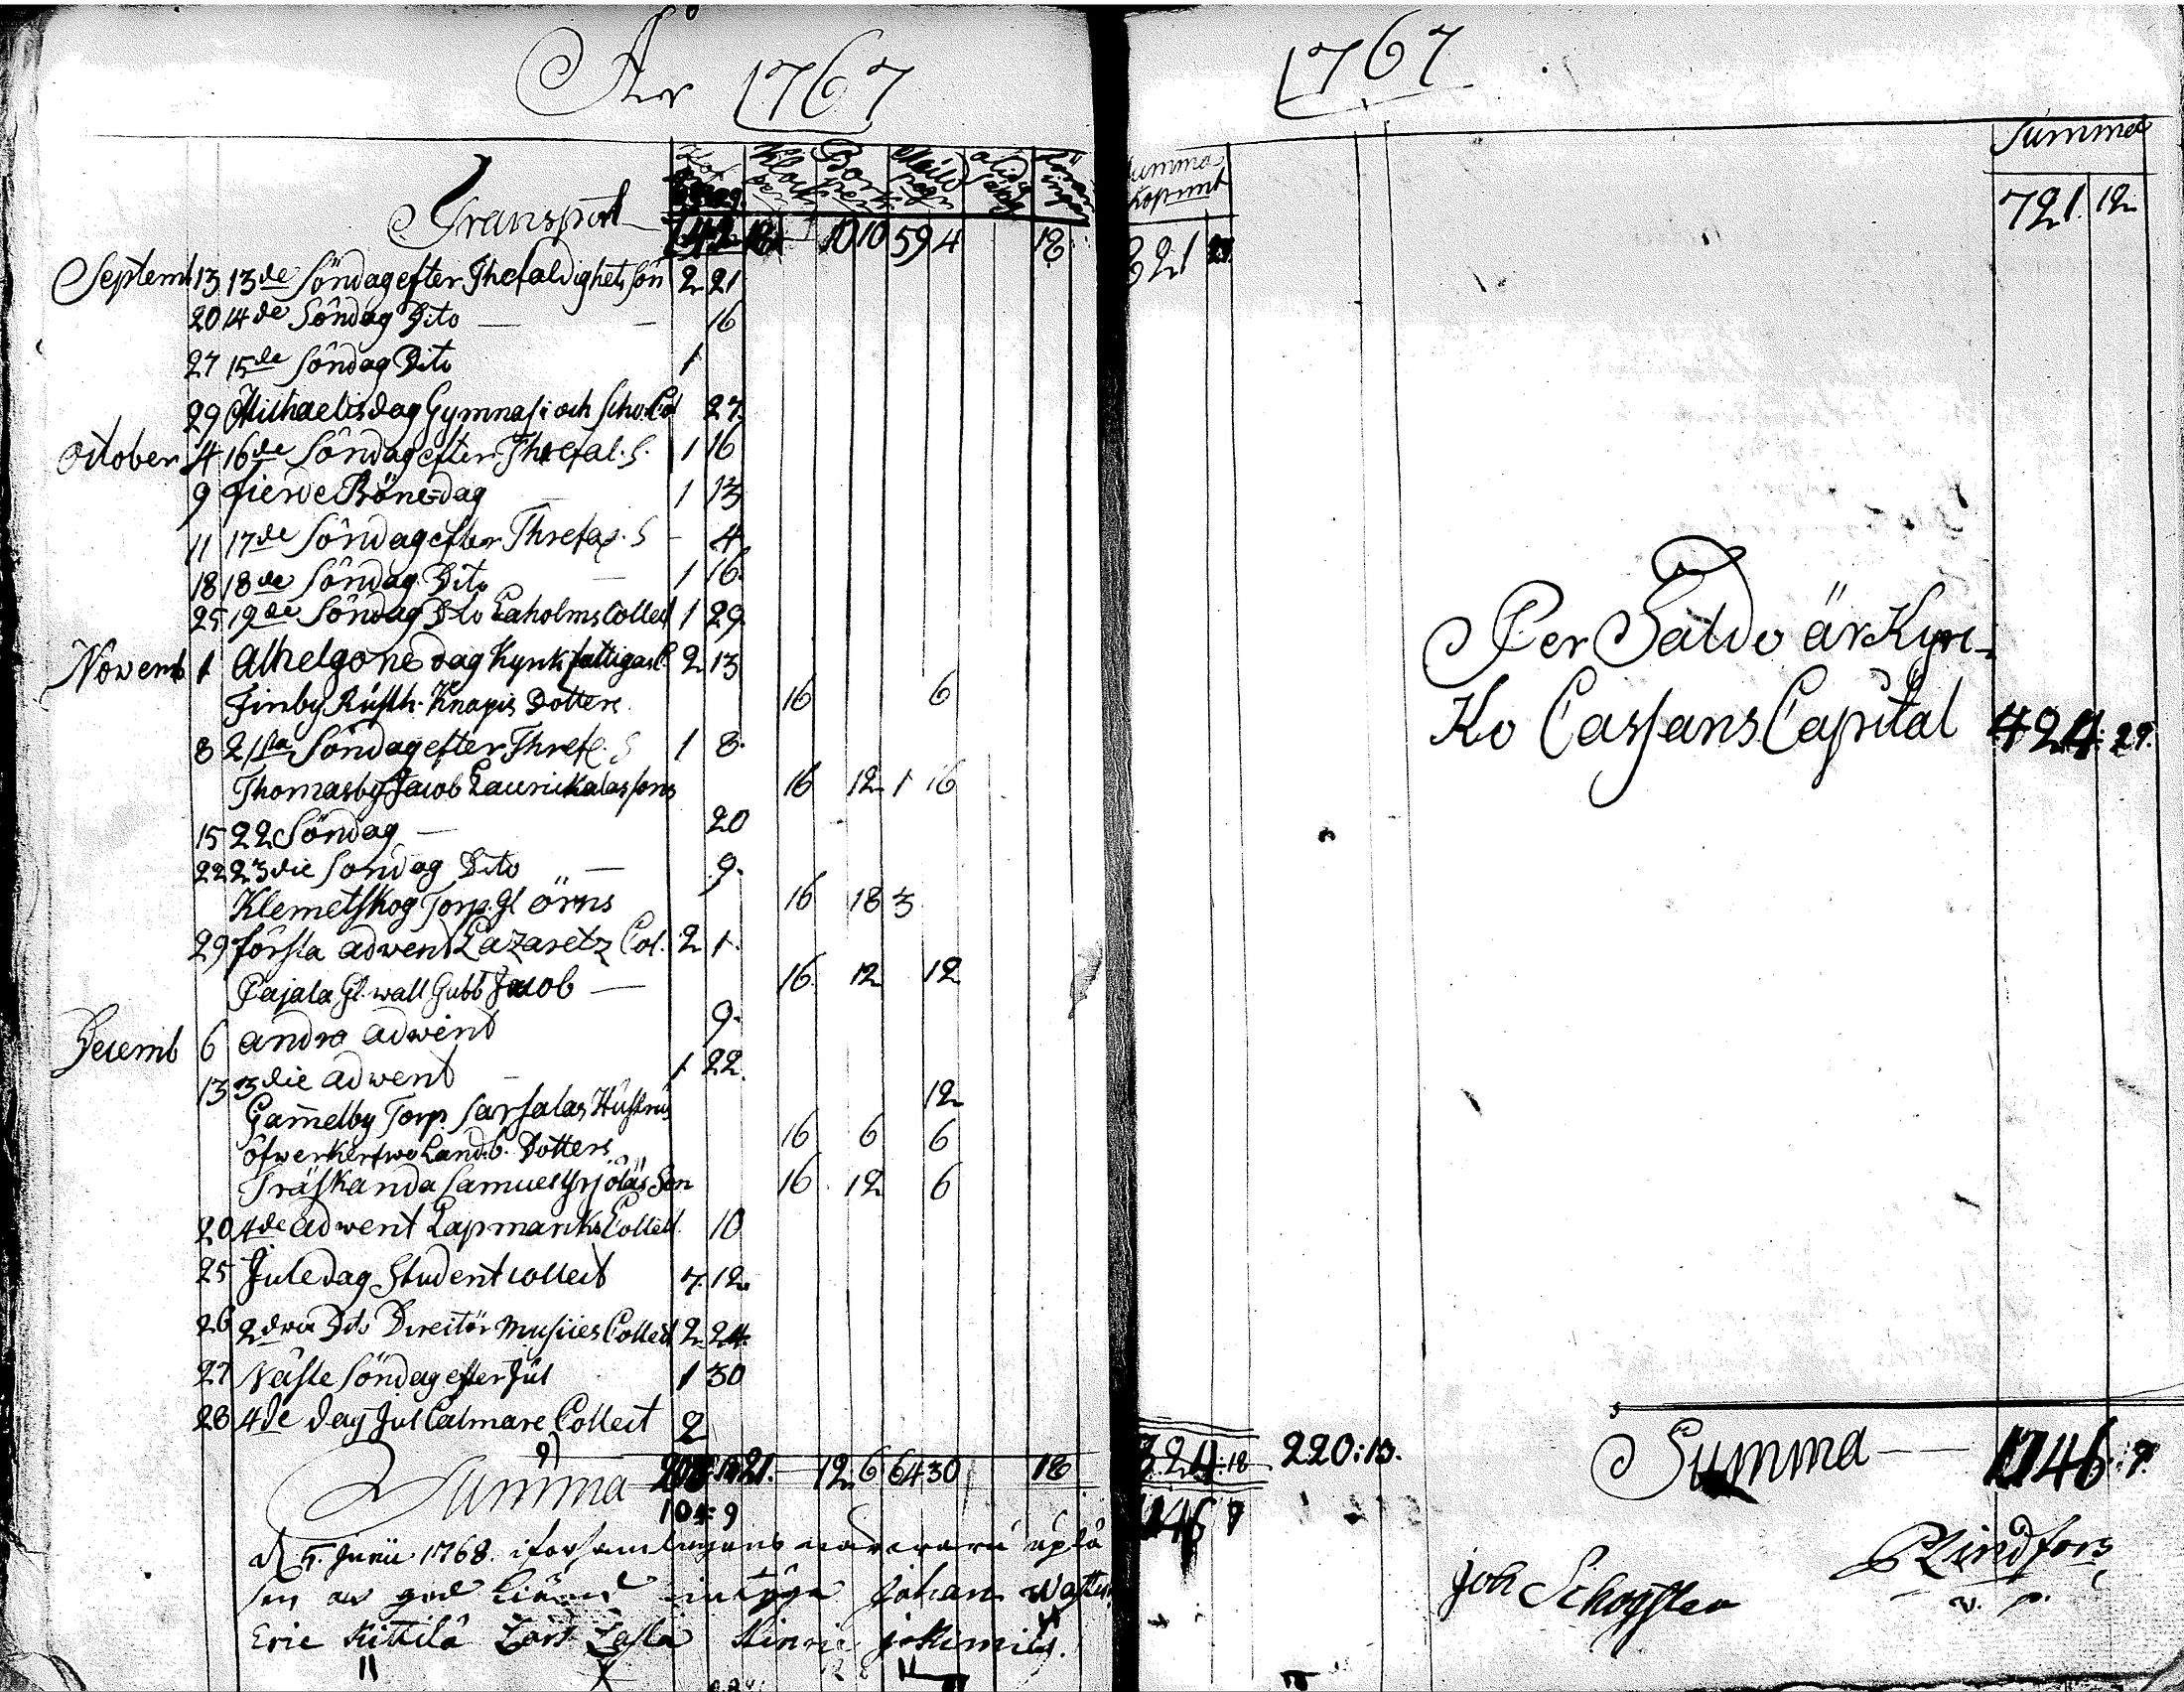 År 1767
Transport 142 18 10 10 59 4 18
Septemb 13 13de Söndag efter Threfaldighets Sön 2 21
20 14de Söndag Dito 16
27 15de Söndag Dito 1
29 Michaelis dag Gymnasi och Scho. Col 27
October 4 16de Söndag efter Threfal. S. 1 16
9 fierde Böne-dag 1 13
11 17de Söndag efter Threfal. S - 4
18 18de Söndag Dito 1 16
25 19de Söndag Dito Laholms Collect 1 29
Novemb 1 Alhelgone dag Kyrk fattigas C. 2 13
Finby Rusth. Knapis Dotters 16 6
8 21sta Söndag efter Thref. S 1 8
Thomasby Jacob Laurickalas sons 16 12 1 16
15 22 Söndag 20
22 23die Söndag Dito 9
Klemetskog Torp. Gl örns 16 18 3
29 första advent Lazaretz Col. 2 1
Pajala Gl. wall Gubb Jacob 16 12 12
Decemb 6 andra adwent 9
13 3die adwent 1 22
Gamelby Torp. Sarsalas Hustrus 12
Ofwerkertwo Landb. Dotters 16 6 6
Träskanda Samuel Yrjöläs Son 16 12 6
20 4de adwent Lapmarks Collect 10
25 Juledag Student collect 7 12
26 2dra Dito Director Musices Collect 2 24
27 Näste Söndag efter Jul 1 30
28 4de dag Jul Calmare Collect 2
Summa 21 12 6 64 30 18
104: 9
d 5. Junii 1768. i församlingens närwaru uplä
sen av god känd intyga Johan
Eric Kittilä Lars Lasla Hinric Jokimies.
1767
Summa
Summa
Kopmt
721 12
321
Per Saldo är Kyrc-
ko Cassans Capital 424: 27.
324: 18 220: 13.
Summa 1146: 7.
Lindfors
v. p.